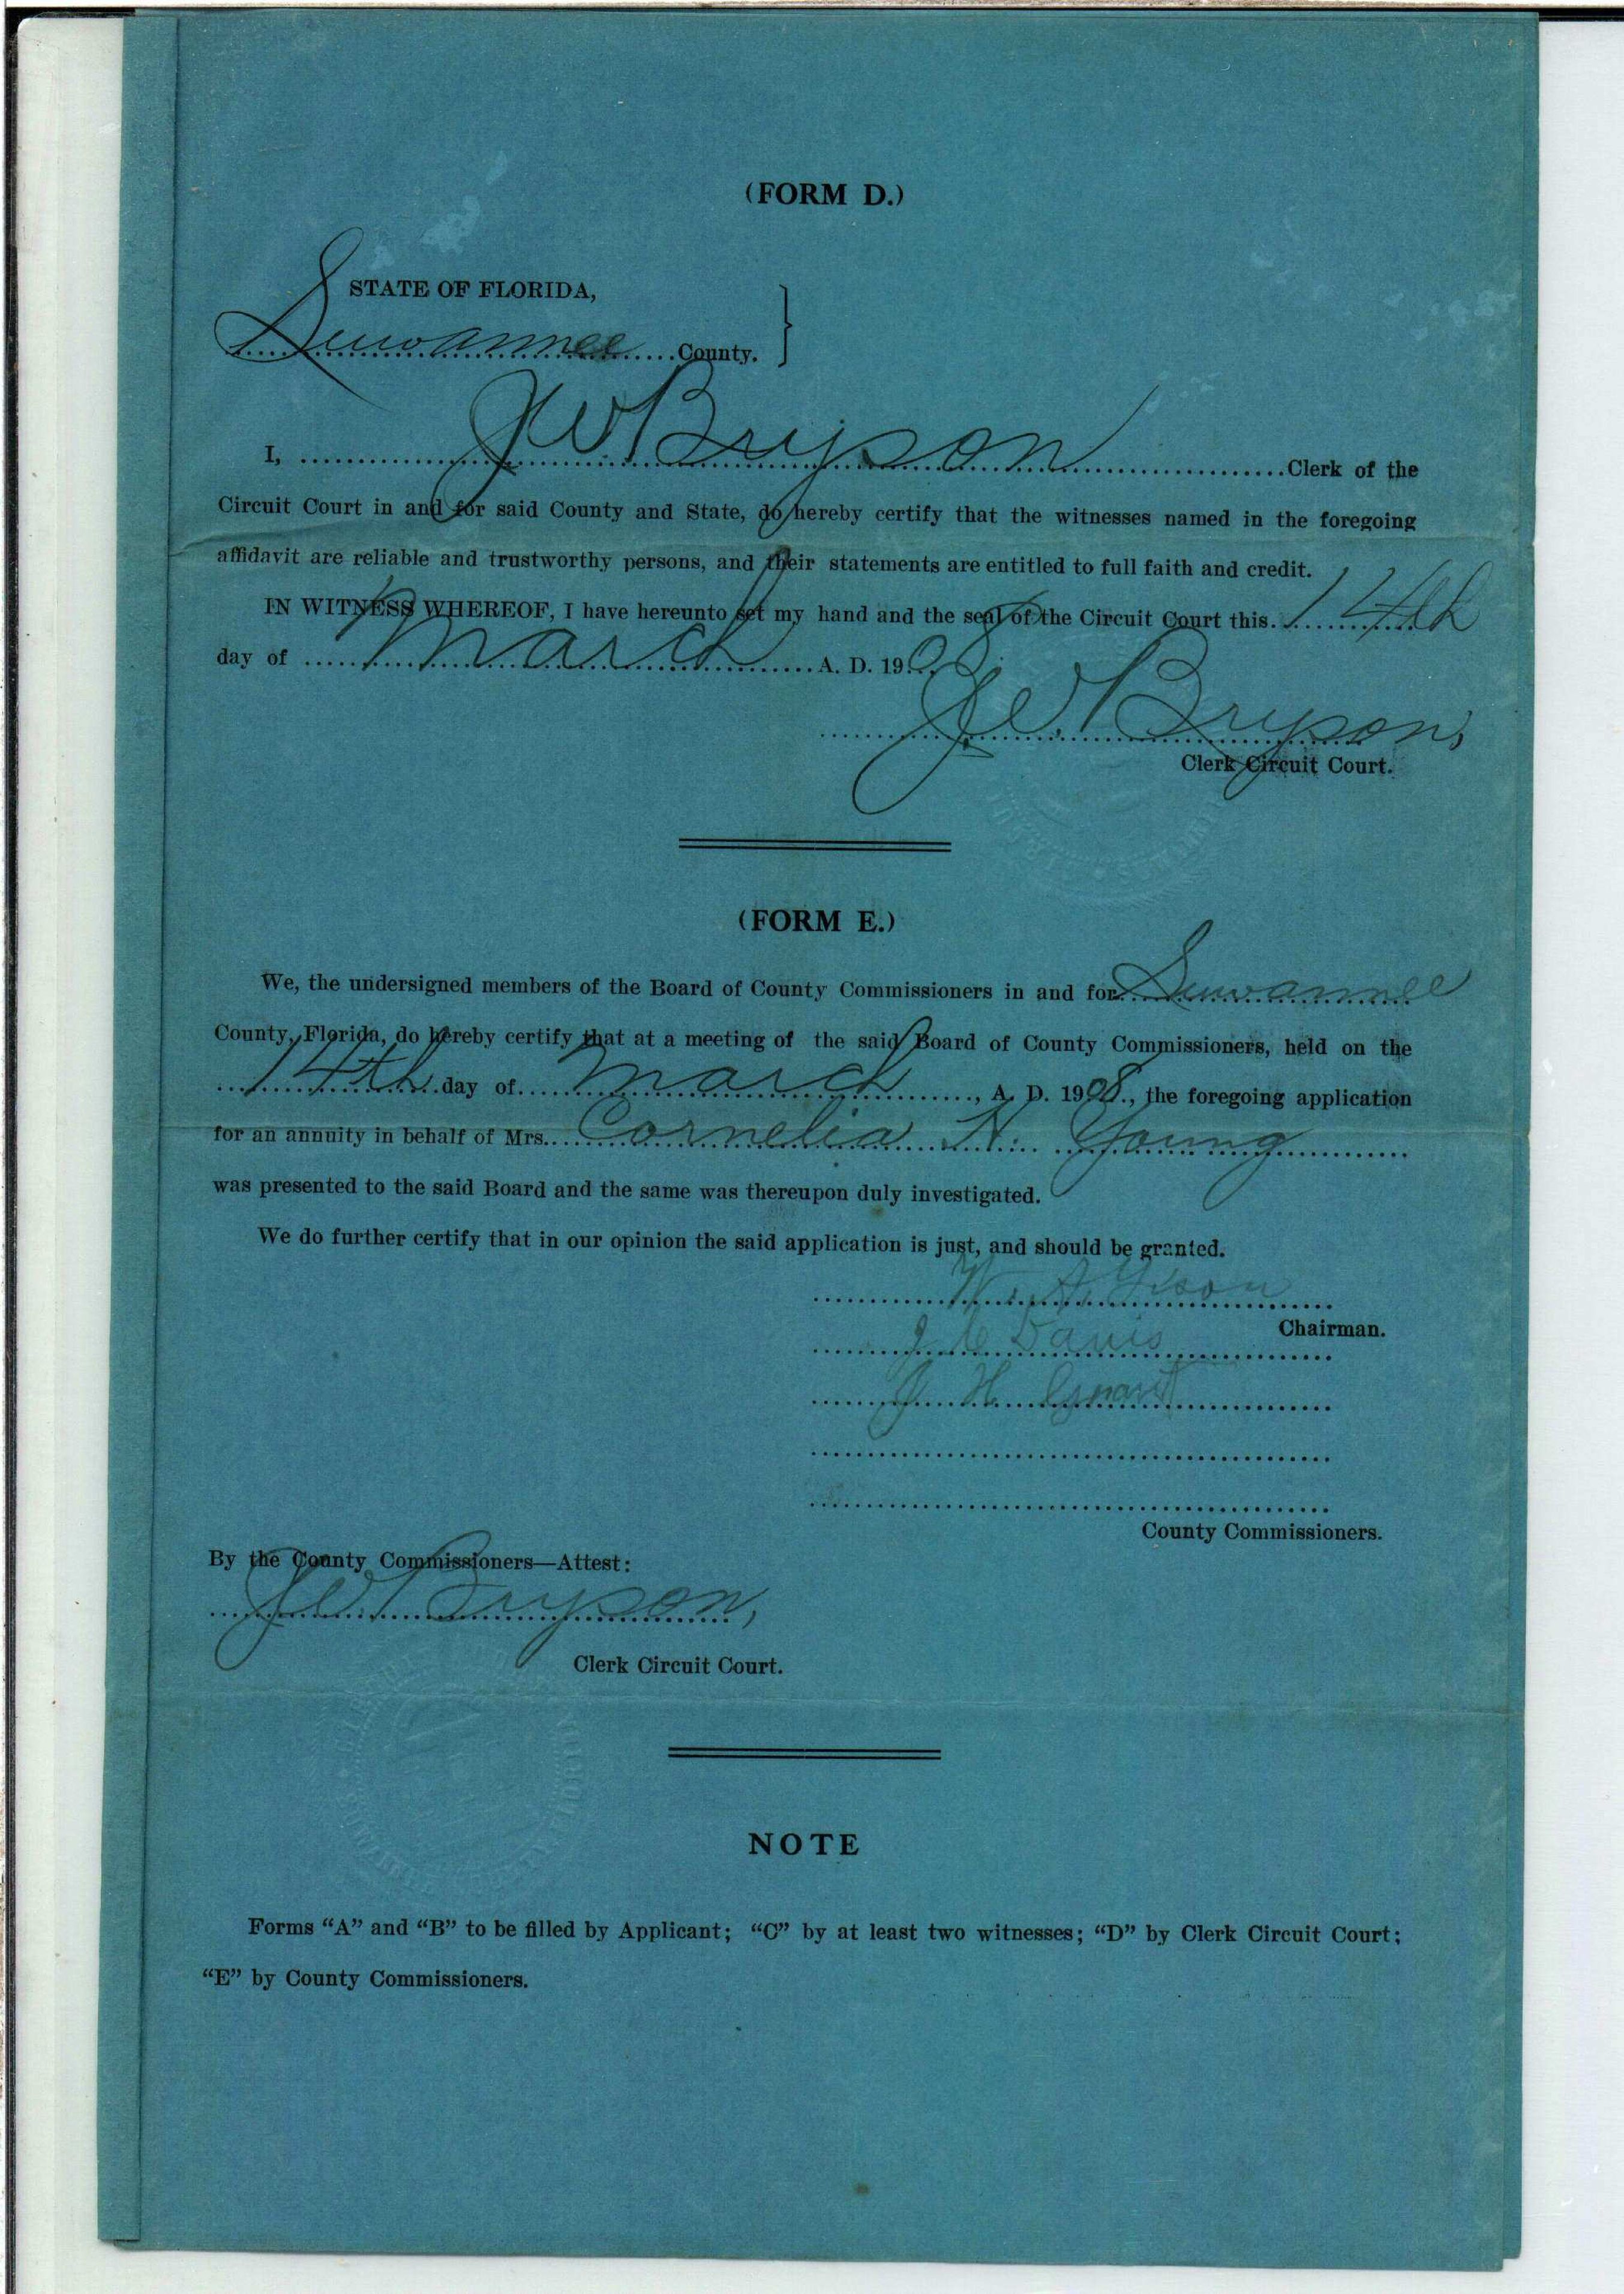 (FORM D.)
STATE OF FLORIDA,
Suwannee County.
I, J W Bryson Clerk of the
Circuit Court in and for said County and State, do hereby certify that the witnesses named in the foregoing
affidavit are reliable and trustworthy persons, and their statements are entitled to full faith and credit.
IN WITNESS WHEREOF, I have hereunto set my hand and the seal of the Circuit Court this 14th
day of March A. D. 1908
J. W. Bryson,
Clerk Circuit Court.
(FORM E.)
We, the undersigned members of the Board of County Commissioners in and for Suwannee
County, Florida, do hereby certify that at a meeting of the said Board of County Commissioners, held on the
14th day of March, A. D. 1908., the foregoing application
for an annuity in behalf of Mrs. Cornelia H. Young
was presented to the said Board and the same was thereupon duly investigated.
We do further certify that in our opinion the said application is just, and should be granted.
W. A.
Chairman.
J C Davis
J. H. Grant
County Commissioners.
By the County Commissioners—Attest:
J W Bryson,
Clerk Circuit Court.
NOTE
Forms “A” and “B” to be filled by Applicant; “C” by at least two witnesses; “D” by Clerk Circuit Court;
“E” by County Commissioners.